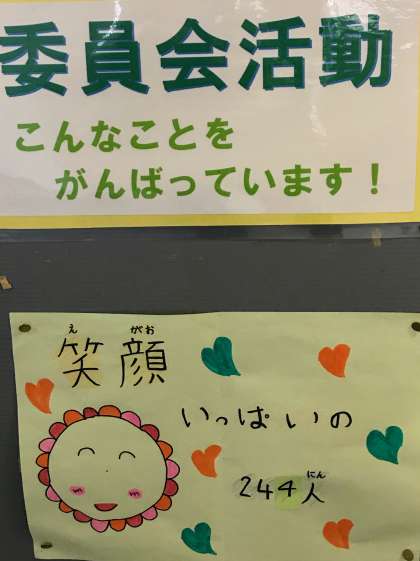 委員会活動
こんなことを
がんばっています！
え がお
笑顔
いっぱいの
にん
244人